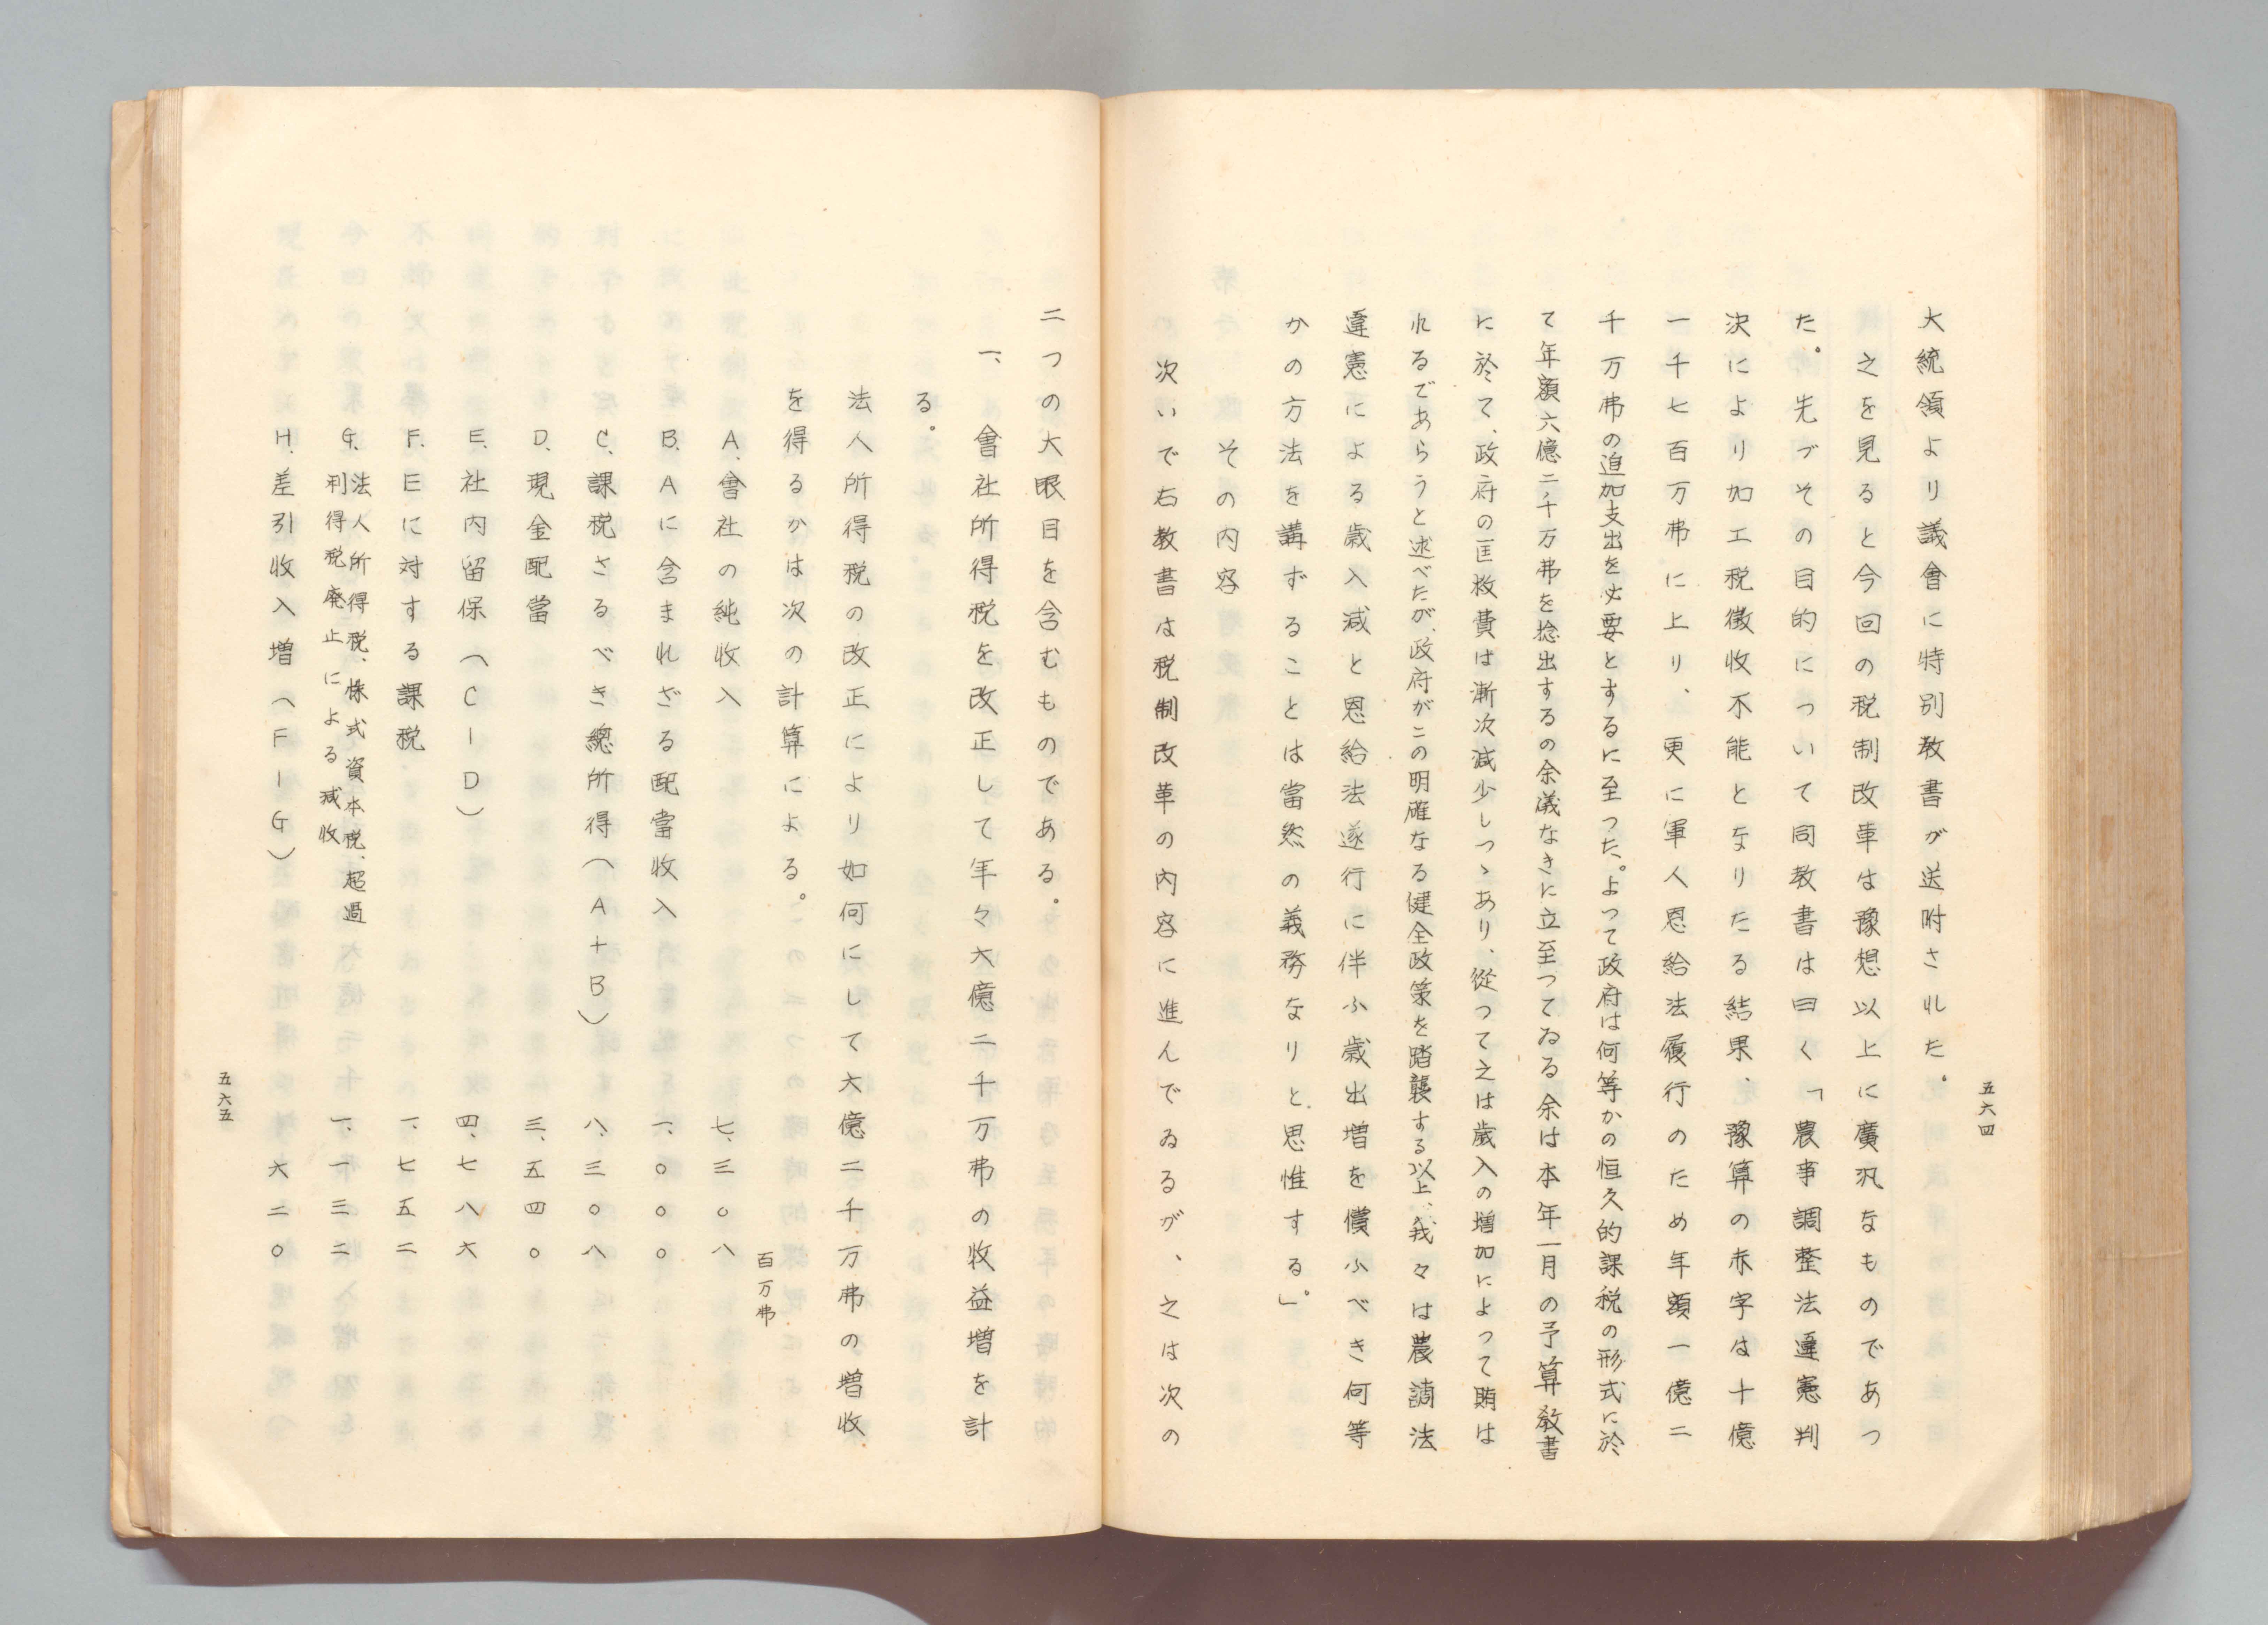 五六四
大統領より議會に特別教書が送附された。
之を見ると今回の税制改革は豫想以上に廣汎なものであつ
た。先づその目的について同教書は曰く「農事調整法違憲判
決により加工税徴收不能となりたる結果、豫算の赤字は十億
一千七百万弗に上り、更に軍人恩給法履行のため年額一億二
千万弗の追加支出を必要とするに至つた。よつて政府は何等かの恒久的課税の形式に於
て年額六億二千万弗を捻出するの余儀なきに立至つてゐる余は本年一月の予算教書
に於て、政府の匡救費は漸次減少しつゝあり、從つて之は歳入の増加によつて賄は
れるであらうと述べたが、政府がこの明確なる健全政策を踏襲する以上、我々は農調法
違憲による歳入減と恩給法遂行に伴ふ歳出増を償ふべき何等
かの方法を講ずることは當然の義務なりと思惟する。」
その内容
次いで右教書は税制改革の内容に進んでゐるが、之は次の
二つの大眼目を含むものである。
一、會社所得税を改正して年々六億二千万弗の收益増を計
る。
法人所得税の改正により如何にして六億二千万弗の増收
を得るかは次の計算による。
百万弗
A、會社の純收入 七、三〇八
B、Aに含まれざる配當收入 一、〇〇〇
C、課税さるべき總所得（A＋B） 八、三〇八
D、現金配當 三、五四〇
E、社内留保（C－D） 四、七八六
F、Eに対する課税 一、七五二
G、法人所得税、株式資本税、超過
利得税廃止による減收 一、一三二
H、差引收入増（F－G） 六二〇
五六五